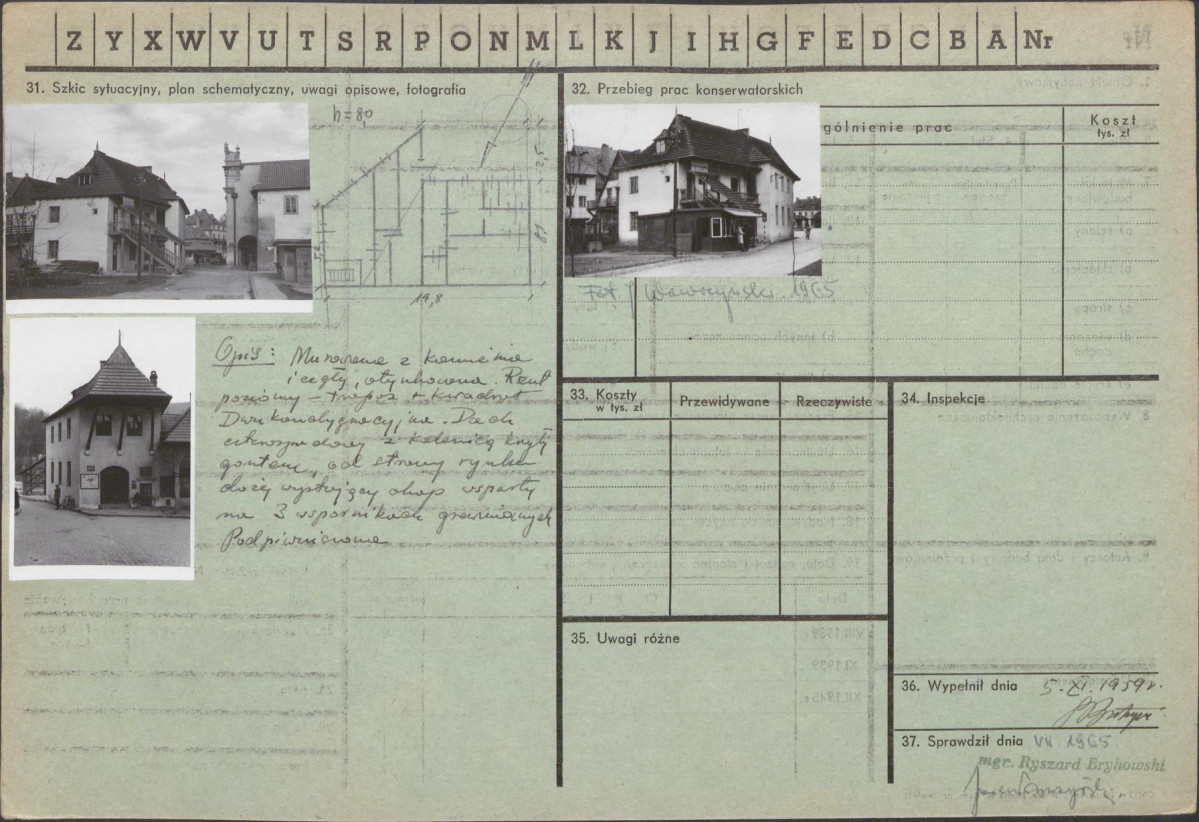 Z Y X W V U T S R P O N M L K J I H G F E D C B A Nr
31. Szkic sytuacyjny, plan schematyczny, uwagi opisowe, fotografia
h = 8,0
2,5
18
5,2
19,8
Opis: Murowana z kamienia
i cegły, otynkowana. Rzut
poziomy – trapez + kwadrat
Dwukondygnacyjna. Dach
czterospadowy z kalenicą kryty
gontem, od strony rynku
duży wystający okap wsparty
na 3 wspornikach drewnianych
Podpiwniczona
32. Przebieg prac konserwatorskich
gólnienie prac
Koszt
tys. zł
Fot. J. Wawrzyński 1965
33. Koszty
w tys. zł
Przewidywane
Rzeczywiste
34. Inspekcje
35. Uwagi różne
36. Wypełnił dnia 5. XI. 1959 r.
37. Sprawdził dnia VII 1965.
mgr. Ryszard Brykowski